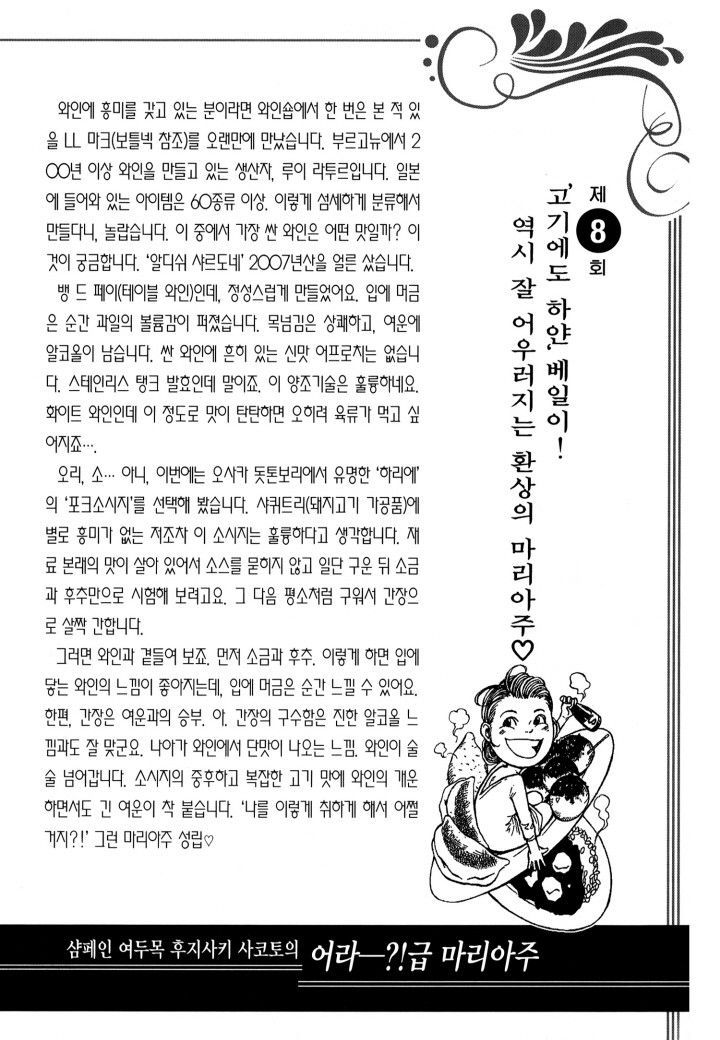 제
8
회
'고기에도 하얀' 베일이!
역시 잘 어우러지는 환상의 마리아주♡
와인에 흥미를 갖고 있는 분이라면 와인숍에서 한 번은 본 적 있
을 LL 마크(보틀넥 참조)를 오랜만에 만났습니다. 부르고뉴에서 2
00년 이상 와인을 만들고 있는 생산자, 루이 라투르입니다. 일본
에 들어와 있는 아이템은 60종류 이상. 이렇게 섬세하게 분류해서
만들다니, 놀랍습니다. 이 중에서 가장 싼 와인은 어떤 맛일까? 이
것이 궁금합니다. '알디쉬 샤르도네' 2007년산을 얼른 샀습니다.
뱅 드 페이(테이블 와인)인데, 정성스럽게 만들었어요. 입에 머금
은 순간 과일의 볼륨감이 퍼졌습니다. 목넘김은 상쾌하고, 여운에
알코올이 남습니다. 싼 와인에 흔히 있는 신맛 어프로치는 없습니
다. 스테인리스 탱크 발효인데 말이죠. 이 양조기술은 훌륭하네요.
화이트 와인인데 이 정도로 맛이 탄탄하면 오히려 육류가 먹고 싶
어지죠….
오리, 소… 아니, 이번에는 오사카 돗톤보리에서 유명한 '하리에'
의 '포크소시지'를 선택해 봤습니다. 샤퀴트리(돼지고기 가공품)에
별로 흥미가 없는 저조차 이 소시지는 훌륭하다고 생각합니다. 재
료 본래의 맛이 살아 있어서 소스를 묻히지 않고 일단 구운 뒤 소금
과 후추만으로 시험해 보려고요. 그 다음 평소처럼 구워서 간장으
로 살짝 간합니다.
그러면 와인과 곁들여 보죠. 먼저 소금과 후추. 이렇게 하면 입에
닿는 와인의 느낌이 좋아지는데, 입에 머금은 순간 느낄 수 있어요.
한편, 간장은 여운과의 승부. 아. 간장의 구수함은 진한 알코올 느
낌과도 잘 맞군요. 나아가 와인에서 단맛이 나오는 느낌. 와인이 술
술 넘어갑니다. 소시지의 중후하고 복잡한 고기 맛에 와인의 개운
하면서도 긴 여운이 착 붙습니다. '나를 이렇게 취하게 해서 어쩔
거지?!' 그런 마리아주 성립♡
샴페인 여두목 후지사키 사코토의 어라—?!급 마리아주